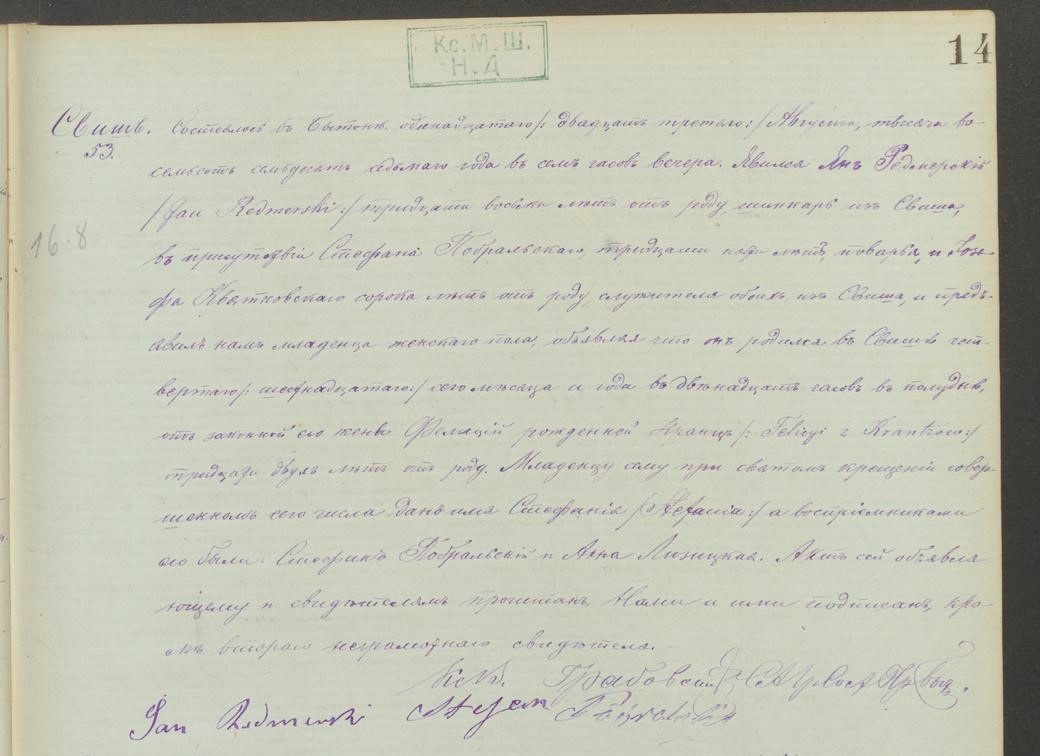 Кс. М. Ш.
Н. Д
14
Свишъ.
53.
16.8
Состоялось въ Бытонѣ. одинадцатаго /: двадцать третьяго :/ Августа, тысяча во-
семьсотъ семьдесятъ седьмаго года въ семъ часовъ вечера. Явился Янъ Редмерскій
/: Jan Redmerski :/ тридцати восьми лѣтъ отъ роду, шинкарь изъ Свиша,
въ присутствіи Стефана Побральскаго, тридцати пяти лѣтъ, поварья, и Іозе-
фа Квятковскаго сорока лѣтъ отъ роду, служителя обоихъ изъ Свиша, и предъ-
явилъ намъ младенца женскаго пола, объявляя что онъ родился въ Свишѣ чет-
вертаго /: шестнадцатаго :/ сего мѣсяца и года въ двѣнадцать часовъ въ полудня,
отъ законной его жены Фелиціи рожденной Кранцъ /: Felicyi z Krantzow :/
тридцати двухъ лѣтъ отъ роду. Младенцу сему при святомъ крещеніи совер-
шонномъ сего числа дано имя Стефанія /: Stefania :/ а воспріемниками
его были: Стефанъ Побральскій и Анна Лизицкая. Актъ сей объявля-
ющему и свидѣтелямъ прочитанъ, Нами и ими подписанъ, кро-
мѣ втораго неграмотнаго свидѣтеля.
Грабовскій
Jan Redmerski